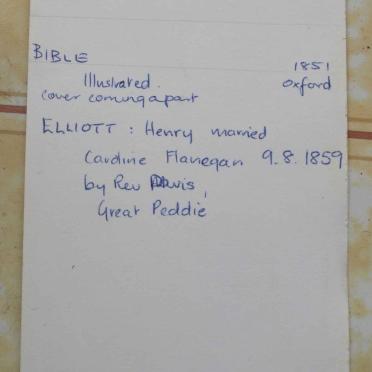 BIBLE 1851
Illustrated. Oxford
cover coming apart
ELLIOTT : Henry married
Caroline Flanegan 9.8.1859
by Rev Davis,
Great Peddie